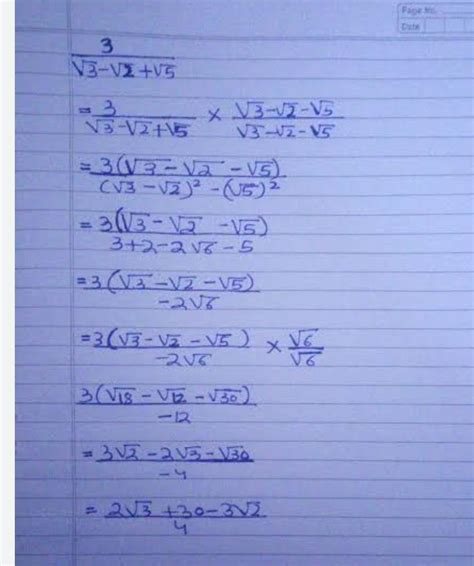 Page No.
Date
3 / (√3-√2+√5)
= 3 / (√3-√2+√5) × (√3-√2-√5) / (√3-√2-√5)
= 3(√3-√2-√5) / ((√3-√2)² - (√5)²)
= 3(√3-√2-√5) / (3+2-2√6-5)
= 3(√3-√2-√5) / (-2√6)
= 3(√3-√2-√5) / (-2√6) × √6 / √6
3(√18-√12-√30) / (-12)
= (3√2-2√3-√30) / (-4)
= (2√3+30-3√2) / 4